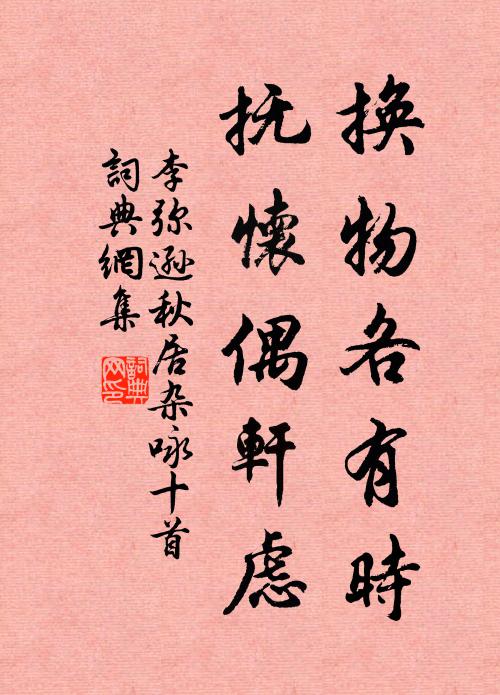 換物各有時
抚懷偶軒虑
李弥遜秋居杂咏十首
詞典網集
詞典網印